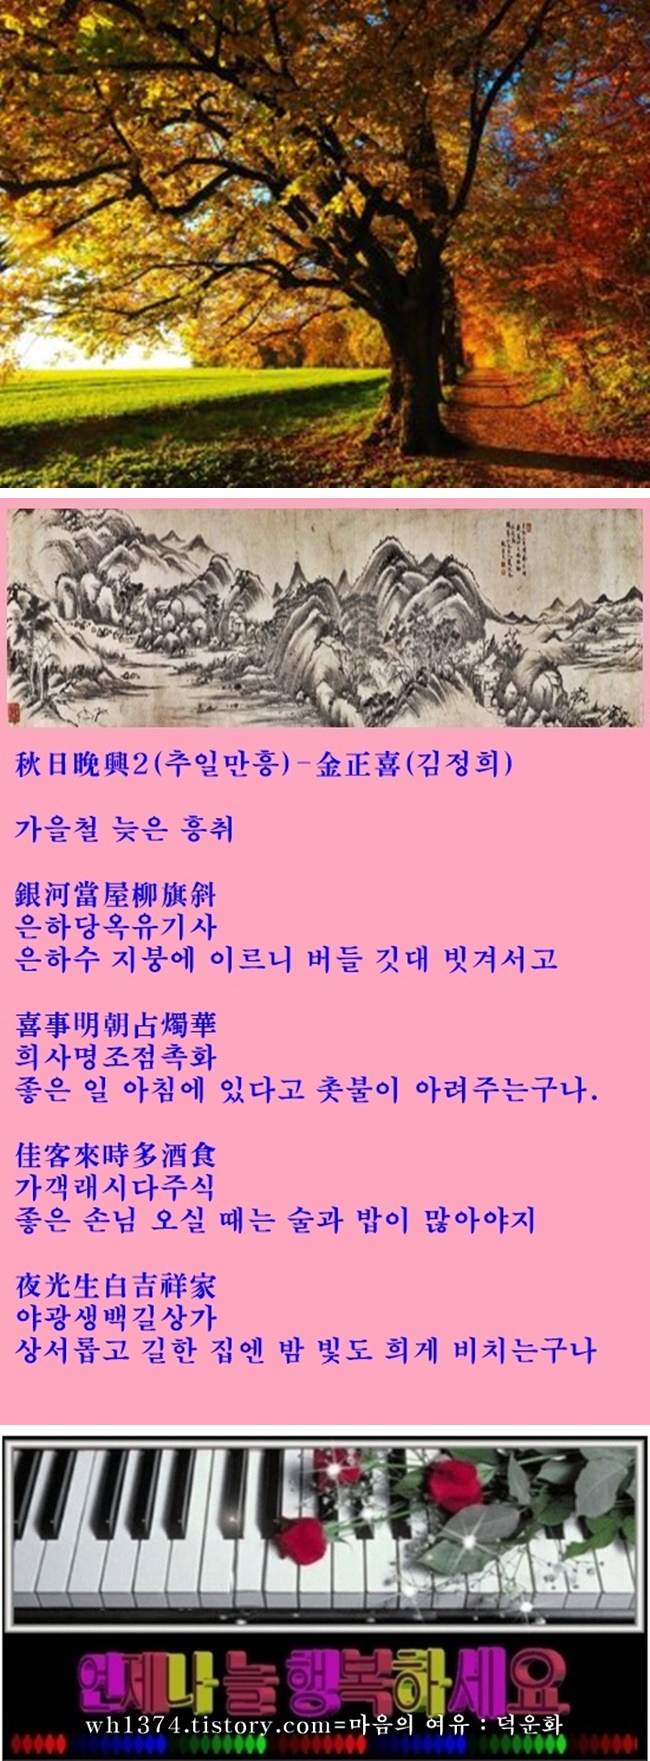 秋日晩興2(추일만흥)-金正喜(김정희)
가을철 늦은 흥취
銀河當屋柳旗斜
은하당옥유기사
은하수 지붕에 이르니 버들 깃대 빗겨서고
喜事明朝占燭華
희사명조점촉화
좋은 일 아침에 있다고 촛불이 아려주는구나.
佳客來時多酒食
가객래시다주식
좋은 손님 오실 때는 술과 밥이 많아야지
夜光生白吉祥家
야광생백길상가
상서롭고 길한 집엔 밤 빛도 희게 비치는구나
언제나 늘 행복하세요
wh1374.tistory.com=마음의 여유 : 덕운화